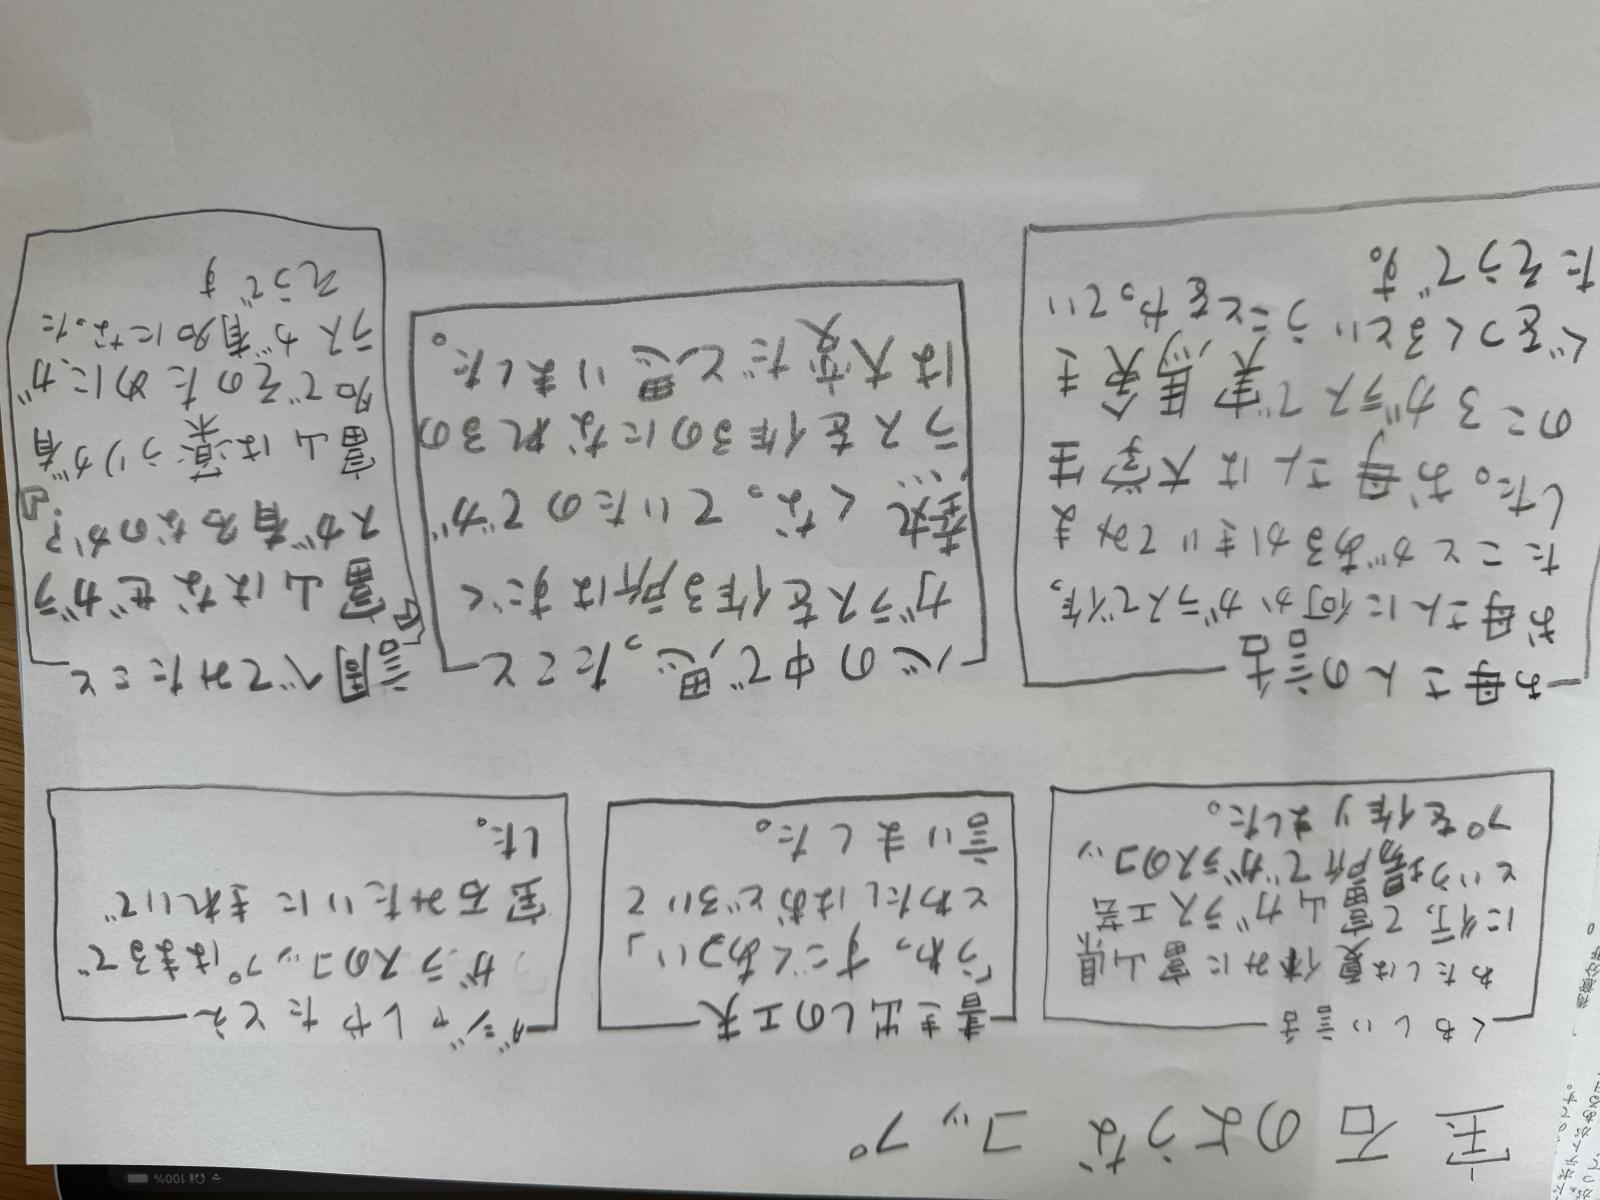 宝石のようなコップ
くわしい話
わたしは夏休みに富山県
に行って富山ガラス工芸
という場所でガラスのコッ
プを作りました。
書き出しの工夫
「うわっ、すごくあつい」
とわたしはおどろいて
言いました。
ダジャレやたとえ
ガラスのコップはまるで
宝石みたいにきれいで
した。
お母さんの話
お母さんに何かガラスで作っ
たことがあるかきいてみま
した。お母さんは大学生
のころガラスで実験き
ぐをつくるということをやってい
たそうです。
心の中で思ったこと
ガラスを作る所はすごく
熱くなっていたのでガ
ラスを作るのになれるの
は大変だと思いました。
調べてみたこと
「富山はなぜガラ
スが有名なのか?」
富山は薬うりが有
名でそのためにガ
ラスが有名になった
そうです
100%